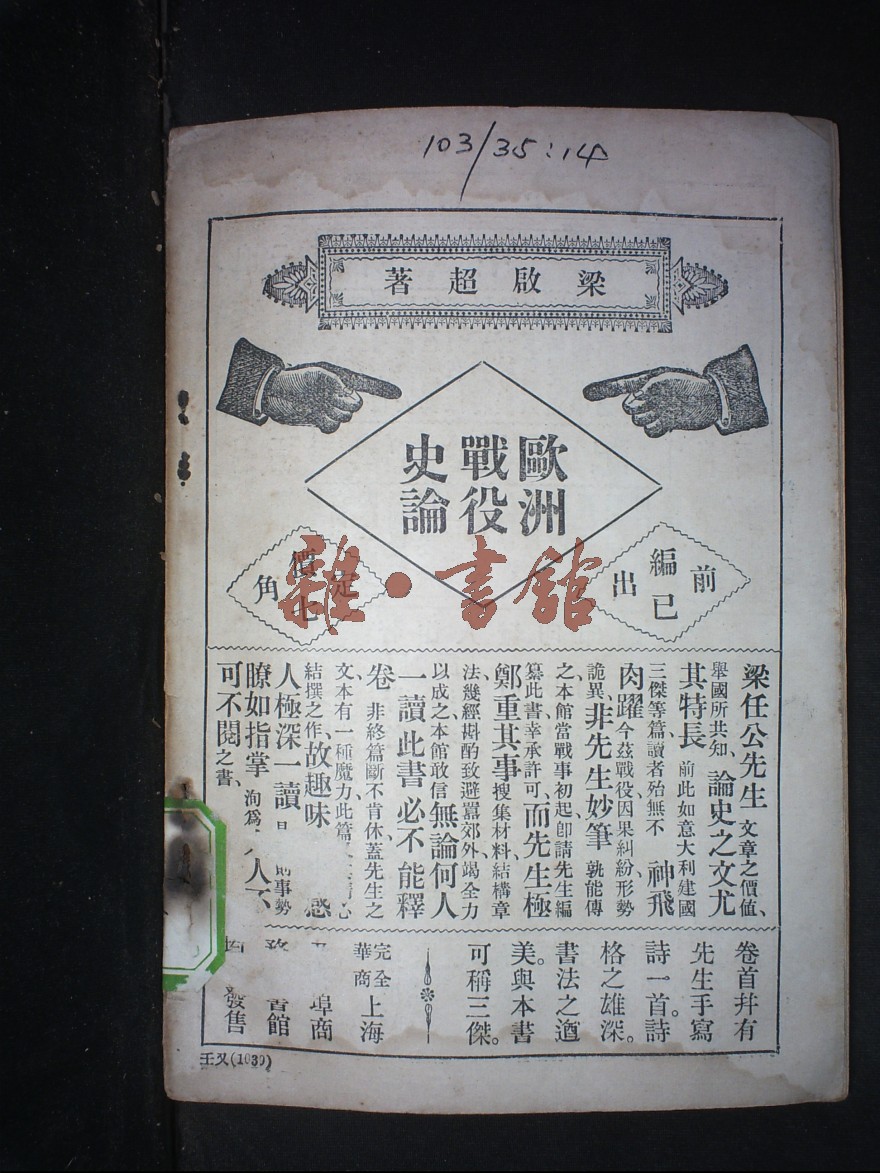 103/35:14
梁啟超著
歐洲
戰役
史論
前編已出
定價七角
雜·書館
梁任公先生文章之價值、
舉國所共知、論史之文尤
其特長前此如意大利建國
三傑等篇讀者殆無不神飛
肉躍今茲戰役因果糾紛形勢
詭異、非先生妙筆孰能傳
之、本館當戰事初起、卽請先生編
纂此書幸承許可、而先生極
鄭重其事搜集材料、結構章
法、幾經斟酌、致避囂郊外、竭全力
以成之、本館敢信無論何人
一讀此書必不能釋
卷非終篇斷不肯休、蓋先生之
文、本有一種魔力、此篇
結撰之作、故趣味感
人極深一讀的事勢
瞭如指掌洵爲人不
可不閱之書、
卷首幷有
先生手寫
詩一首。詩
格之雄深。
書法之遒
美。與本書
可稱三傑。
完全華商上海
埠商
書館
發售
壬又(1039)